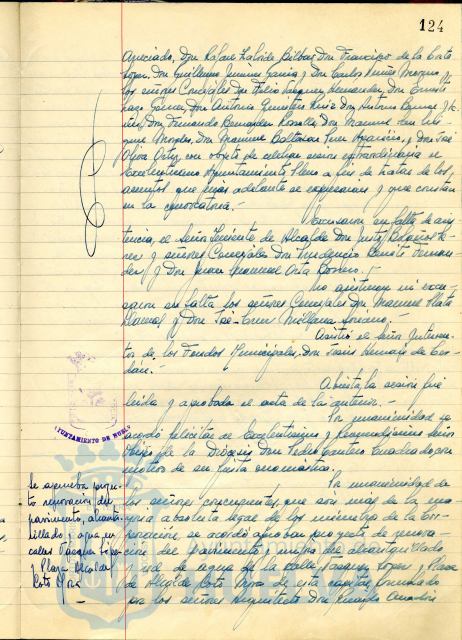 124
Apreciado, Don Rafael Bilbao, Don Francisco de la Corte
Don Guillermo Jimenez Garcia y Don Carlos
los señores Concejales Don Vazquez Hernandez, Don
Gomez, Don Antonio Ruiz, Don Antonio
Don Fernando Don Manuel
Morales, Don Manuel Baltasar Aparicio, y Don José
Oliva Ortiz, con objeto de celebrar sesion extraordinaria el
Excelentisimo Ayuntamiento Pleno a fin de tratar de los
asuntos que mas adelante se expresaran y que constan
en la convocatoria.-
Excusaron su falta de asis-
tencia, el Señor Teniente de Alcalde Don Justo Bolaños
y señores Concejales Don Benito Fernan-
dez y Don Juan Manuel Orta Borrero.-
No asistieron ni excu-
saron su falta los señores Concejales Don Manuel Mata
y Don José Soriano.-
Asistió el Señor Interven-
tor de los Fondos Municipales, Don
Abierta la sesión fue
leida y aprobada el acta de la anterior.-
Por unanimidad se
acordó felicitar al Excelentisimo y Reverendisimo Señor
Obispo de la Diocesis Don Pedro Cantero Cuadrado, con
motivo de su fiesta onomastica.-
Por unanimidad de
los señores concurrentes, que son mas de la ma-
yoria absoluta legal de los miembros de la Cor-
poracion, se acordó aprobar proyecto de renova-
cion del pavimento, del alcantarillado
y red de agua de la calle Vazquez Lopez y Plaza
de Alcalde Coto Mora de esta capital, formulado
por los señores Arquitecto Don Ricardo Anadon
AYUNTAMIENTO DE HUELVA
Se aprueba proyec-
to renovacion del
pavimento, alcanta-
rillado y agua en
calles Vazquez Lopez
y Plaza Alcalde
Coto Mora